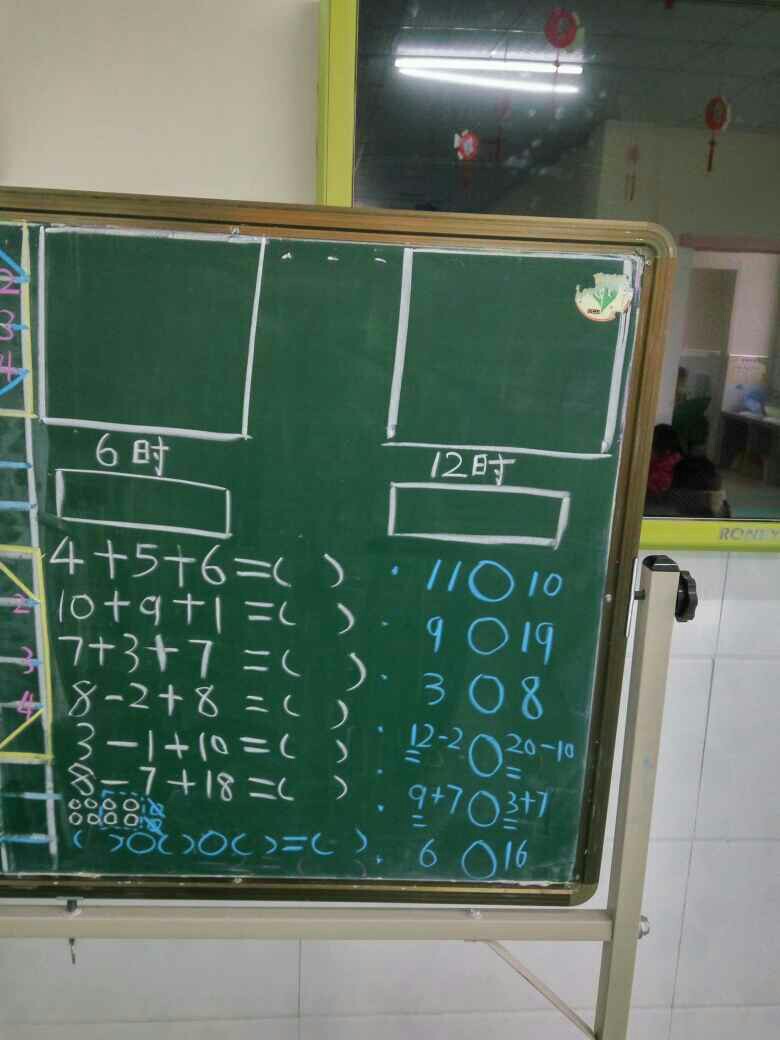 2
3
4
6时
12时
4+5+6=( )
10+9+1=( )
7+3+7=( )
8-2+8=( )
3-1+10=( )
8-7+18=( )
( )○( )○( )=( )
11○10
9○19
3○8
12-2○20-10
9+7○3+7
6○16
2
3
4